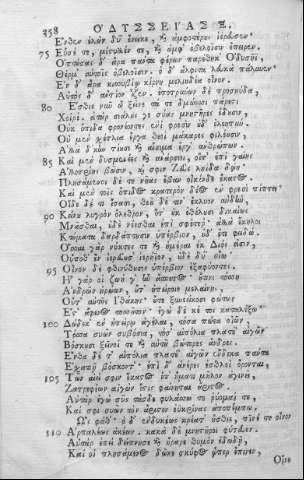 358 ὈΔΥΣΣΕΊΑΣ Ξ.
Ἔνθεν ἑλὼν δύ' ἔνεικε, καὶ ἀμφοτέρους ἱέρευσεν·
75 Εὗσέ τε, μίστυλλέν τε, καὶ ἀμφ' ὀβελοῖσιν ἔπειρεν.
Ὀπτήσας δ' ἄρα πάντα φέρων παρέθηκ' Ὀδυσῆϊ,
Θέρμ' αὐτοῖς ὀβελοῖσιν. ὁ δ' ἄλφιτα λευκὰ πάλυνεν·
Ἐν δ' ἄρα κισσυβίῳ κίρνη μελιηδέα οἶνον,
Αὐτὸς δ' ἀντίον ἷζεν. ἐποτρύνων δὲ προσηύδα·
80 Ἔσθιε νῦν ὦ ξεῖνε τά τε δμώεσσι πάρεστι
Χοίρε'. ἀτὰρ σιάλους γε σύας μνηστῆρες ἔδουσιν,
Οὐκ ὄπιδα φρονέοντες ἐνὶ φρεσὶν οὐδ' ἐλεητύν.
Οὐ μὲν σχέτλια ἔργα θεοὶ μάκαρες φιλέουσιν,
Ἀλλὰ δίκην τίουσι καὶ αἴσιμα ἔργ' ἀνθρώπων.
85 Καὶ μὲν δυσμενέες καὶ ἀνάρσιοι, οἵτ' ἐπὶ γαίης
Ἀλλοτρίης βῶσιν, καί σφιν Ζεὺς ληΐδα δῴη·
Πλησάμενοι δέ τε νῆας ἔβαν οἶκόνδε νέεσθαι·
Καὶ μὲν τοῖς ὄπιδος κρατερὸν δέος ἐν φρεσὶ πίπτει·
Οἵδε δέ τι ἴσασι, θεοῦ δέ τιν' ἔκλυον αὐδὴν,
90 Κείνου λυγρὸν ὄλεθρον, ὅτ' οὐκ ἐθέλουσι δικαίως
Μνᾶσθαι, οὐδὲ νέεσθαι ἐπὶ σφέτερ'. ἀλλὰ ἕκηλοι
Κτήματα δαρδάπτουσιν ὑπέρβιον, οὐδ' ἔπι φειδώ.
Ὅσσαι γὰρ νύκτες τε καὶ ἡμέραι ἐκ Διός εἰσιν,
Οὔποθ' ἓν ἱρεύουσ' ἱερήϊον, οὐδὲ δύ' οἴω·
95 Οἶνον δὲ φθινύθουσιν ὑπέρβιον ἐξαφύοντες.
Ἦ γάρ οἱ ζωή γ' ἦν ἄσπετος· οὔτινι τόσση
Ἀνδρῶν ἡρώων, οὔτ' ἠπείροιο μελαίνης,
Οὔτ' αὐτῆς Ἰθάκης· οὐδὲ ξυνεείκοσι φωτῶν
Ἔστ' ἄφενος τοσσοῦτον· ἐγὼ δέ κέ τοι καταλέξω·
100 Δώδεκ' ἐν ἠπείρῳ ἀγέλαι, τόσα πώεα οἰῶν,
Τόσσα συῶν συβόσια, τόσ' αἰπόλια πλατέ' αἰγῶν
Βόσκουσι ξεῖνοί τε καὶ αὐτοῦ βώτορες ἄνδρες.
Ἐνθάδε τ' αἰπόλια πλατέ' αἰγῶν ἕνδεκα πάντα
Ἐσχατιῇ βόσκοντ'· ἐπὶ δ' ἀνέρες ἐσθλοὶ ὄρονται,
105 Τῶν αἰεί σφιν ἕκαστος ἐπ' ἤματι μῆλον ἀγινεῖ,
Ζατρεφέων αἰγῶν ὅστις φαίνηται ἄριστος.
Αὐτὰρ ἐγὼ σῦς τάσδε φυλάσσω τε ῥύομαί τε,
Καί σφι συῶν τὸν ἄριστον εὖ κρίνας ἀποπέμπω.
Ὣς φάθ'· ὁ δ' ἐνδυκέως κρέατ' ἤσθιε, πῖνέ τε οἶνον
110 Ἁρπαλέως ἀκέων. κακὰ δὲ μνηστῆρσι φύτευεν.
Αὐτὰρ ἐπεὶ δείπνησε καὶ ἤραρε θυμὸν ἐδωδῇ,
Καί οἱ πλησάμενος δῶκε σκύφος ᾧπερ ἔπινεν,
Οἴνου